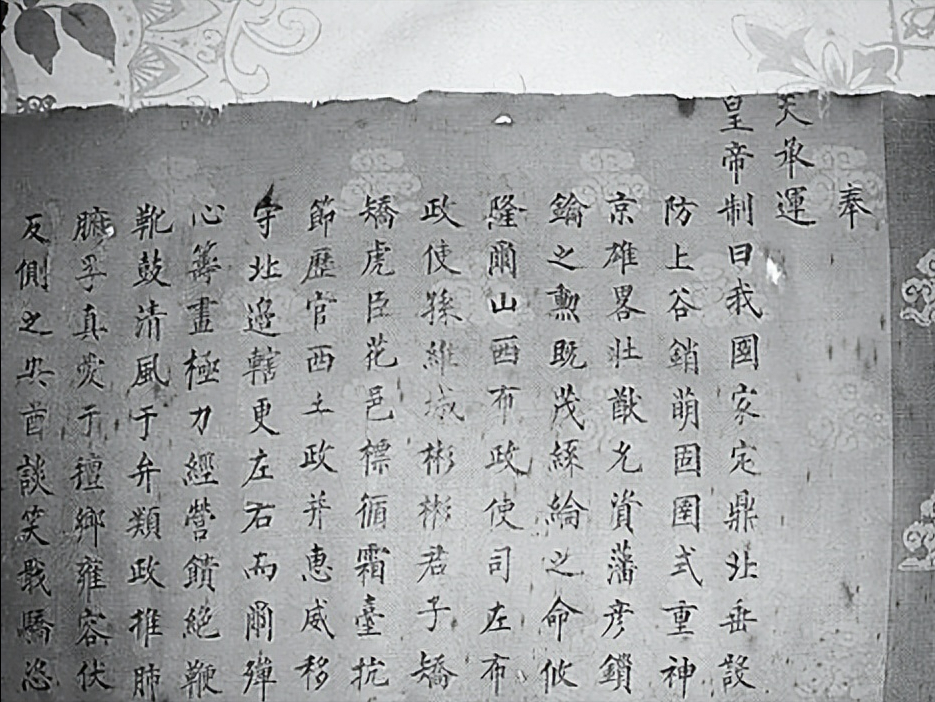 奉
天承運
皇帝制曰我國家定鼎北垂設
防上谷銷萌固圉式重神
京雄畧壯猷允資藩彥鎖
鑰之勲既茂絲綸之命攸
隆爾山西布政使司左布
政使孫維城彬彬君子矯
矯虎臣花邑標循霜臺抗
節歷官西土政并惠威移
守北邉轄更左右而爾殫
心籌畫極力經營饋絕鞭
靴鼓清風于弁類政推肺
腑孚真愛于氊鄉雍容伏
反側之酋談笑戢驕恣